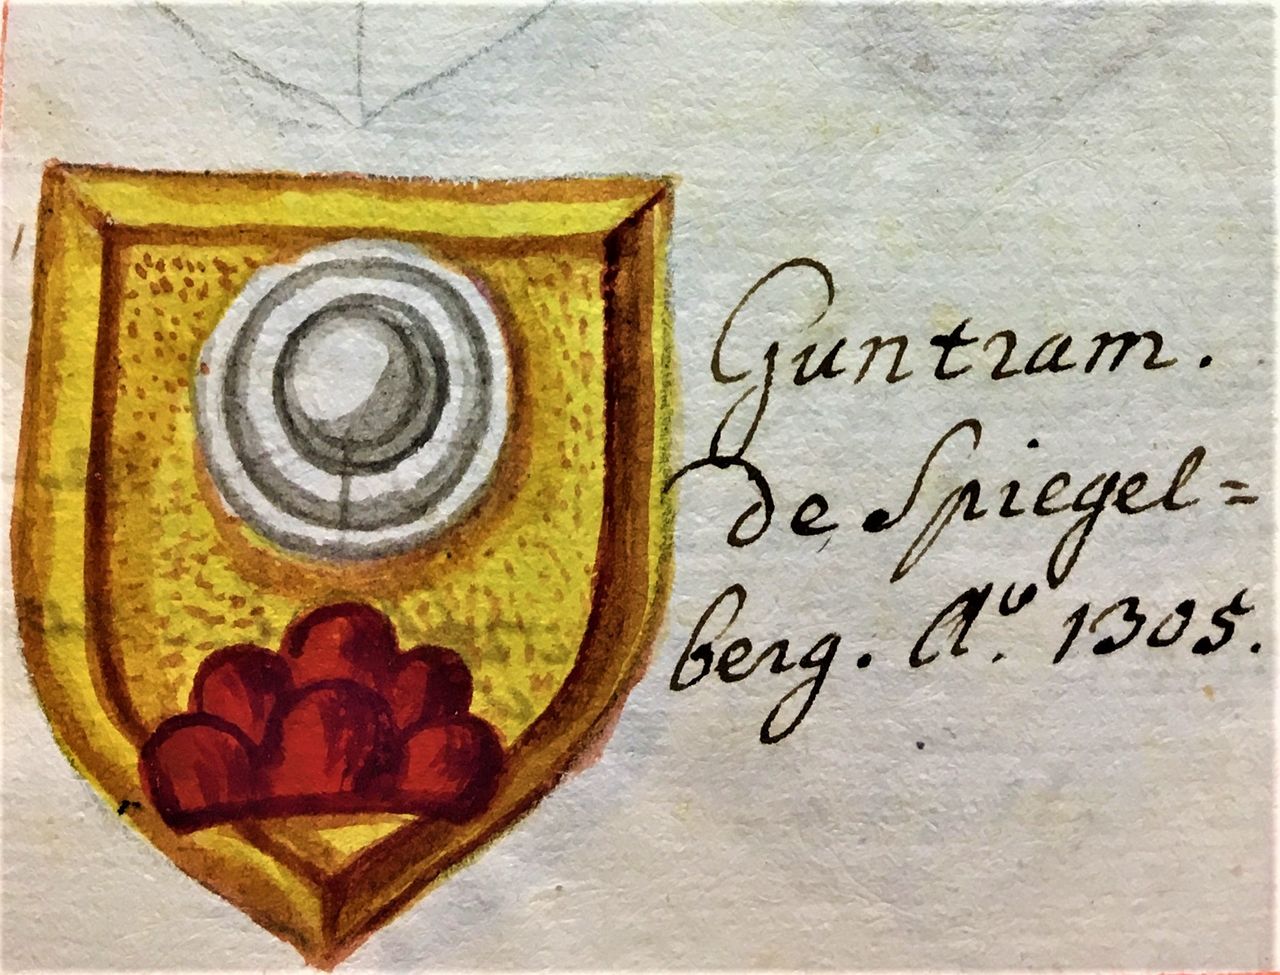 Guntram.
de Spiegel=
berg. Aº. 1305.